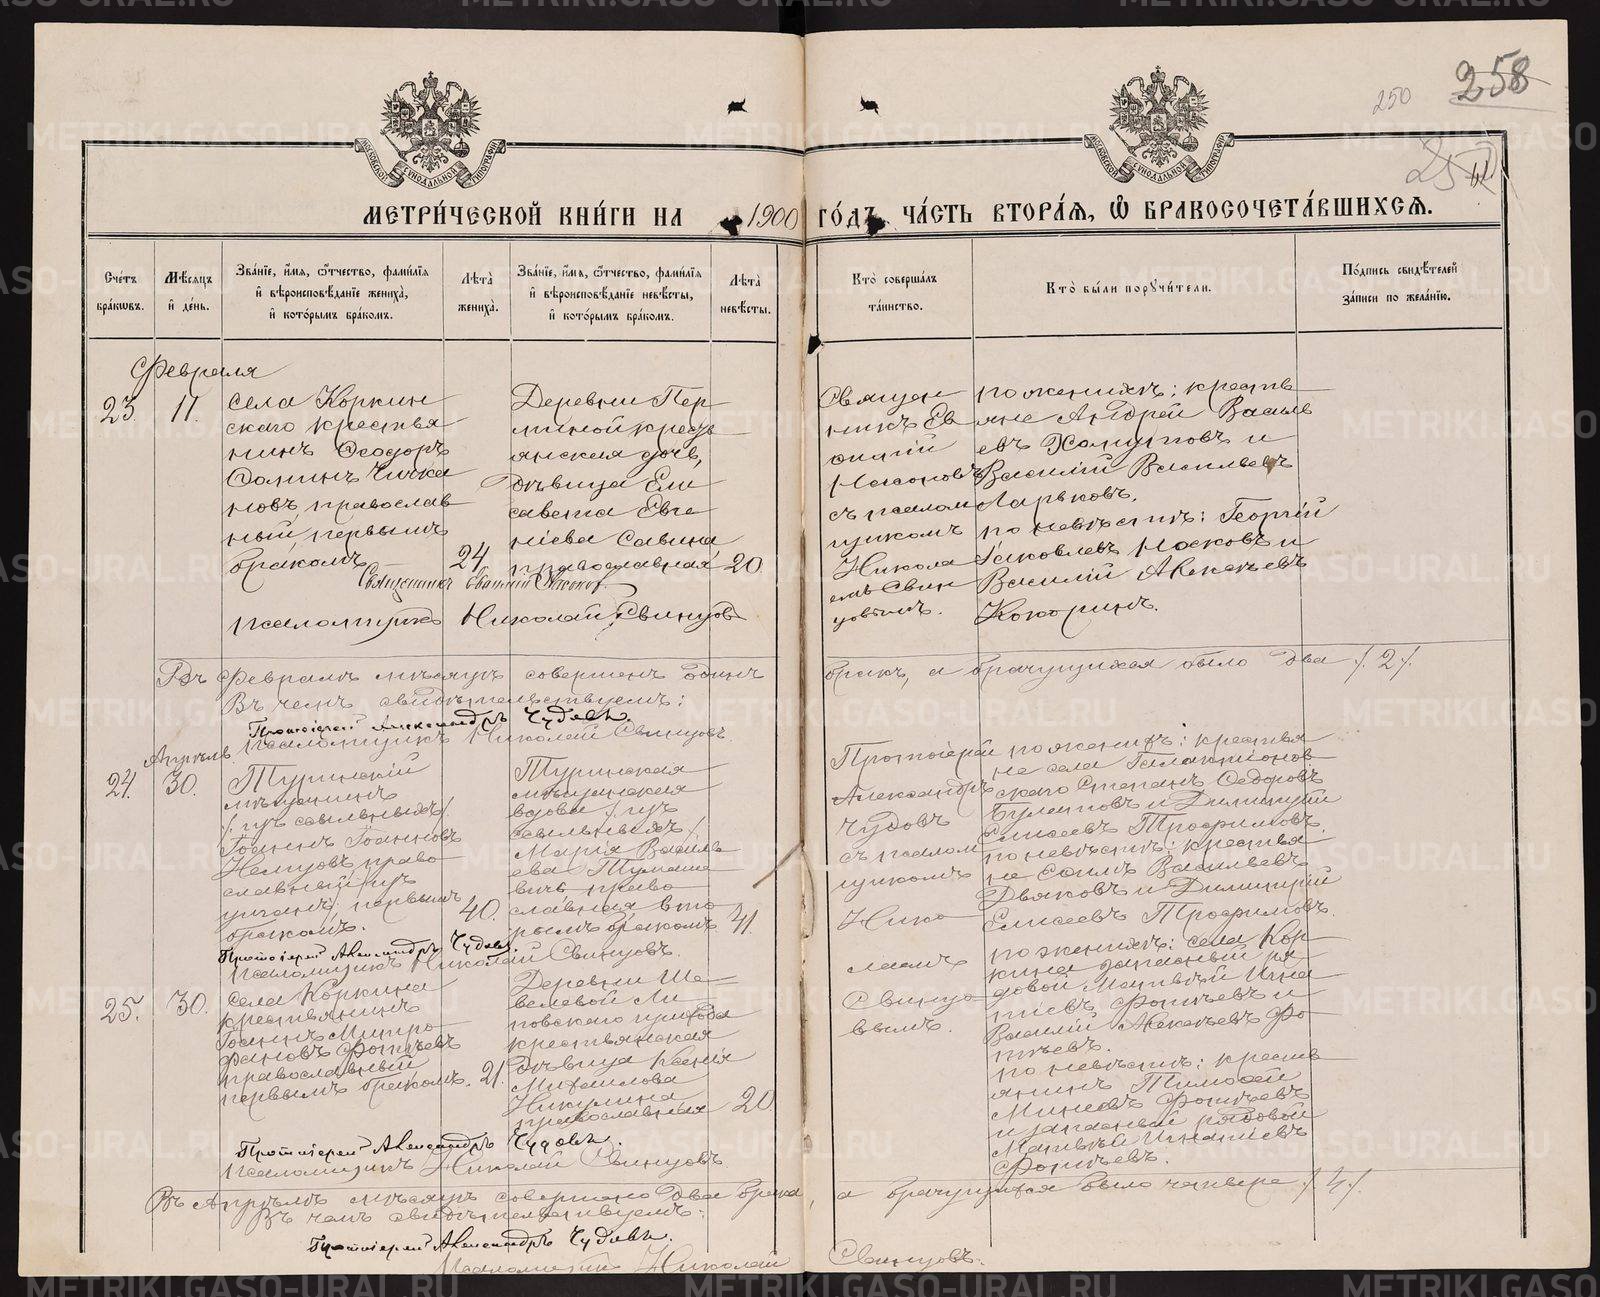 250
258
МЕТРИ́ЧЕСКОЙ КНИ́ГИ НА 1900 ГО́ДЪ, ЧА́СТЬ ВТОРА́Я, Ѿ БРАКОСОЧЕТА́ВШИХСЯ.
Сче́тъ бра́кѡвъ.
Мѣ́сяцъ и҆ де́нь.
Зва́нїе, и҆́мя, ѻ҆́тчество, фами́лїя и҆ вѣроисповѣ́данїе жениха̀, и҆ кото́рымъ бра́комъ.
Лѣ́та жениха̀.
Зва́нїе, и҆́мя, ѻ҆́тчество, фами́лїя и҆ вѣроисповѣ́данїе невѣ́сты, и҆ кото́рымъ бра́комъ.
Лѣ́та невѣ́сты.
Кто̀ соверша́лъ та́инство.
Кто̀ бы́ли порꙋчи́тели.
По́дпись свидѣ́телей за́писи по жела́нїю.
Февраля
23. 11.
села Коркин
скаго крестья
нинъ Ѳеодоръ
новъ, православ
ный, первымъ
бракомъ
24.
Деревни Пер
миной кресть
янская дочь,
дѣвица Ели
савета Евге
ніева Савина
православная
20
Священ
никъ Ев
съ псалом
щикомъ
Никола
емъ Свин
цовымъ.
по женихѣ: крестья
яне Андрей Василь
евъ и
Василій Васильевъ
Ларьковъ.
по невѣстѣ: Георгій
Іаковлевъ Носковъ и
Василій Алексѣевъ
Кокоринъ.
Священникъ
Псаломщикъ Николай Свинцовъ
Въ Февралѣ мѣсяцѣ совершенъ одинъ бракъ, а брачущихся было два /.2/.
Въ чемъ свидѣтельствуемъ:
Протоіерей Александръ Чудовъ.
Псаломщикъ Николай Свинцовъ.
Апрѣль
24. 30.
Туринскій
мѣщанинъ
/изъ ссыльныхъ/
Іоаннъ Іоанновъ
Немцовъ право
славный /изъ
бракомъ.
40.
Туринская
мѣщанская
вдова /изъ
ссыльныхъ/
Марія Василь
ева Тумаше
вичъ право
славная вто
рымъ бракомъ
41.
Протоіерей
Александръ
Чудовъ
съ псалом
щикомъ
Нико
лаемъ
Свинцо
вымъ.
по женихѣ: крестья
не села Галактіонов
скаго Степанъ Ѳедоровъ
Булатовъ и Димитрій
Елисеевъ Трофимовъ.
по невѣстѣ: крестья
не Емилъ Васильевъ
Дьяковъ и Димитрій
Елисеевъ Трофимовъ.
Протоіерей Александръ Чудовъ.
Псаломщикъ Николай Свинцовъ.
25. 30.
села Коркина
крестьянинъ
Іоаннъ Митро
фановъ Фотѣевъ
православный
первымъ бракомъ.
21.
Деревни Ше
велевой Ли
повскаго прихода
крестьянская
дѣвица Ксенія
Михаилова
Никулина
православная
20
по женихѣ: села Кор
кина запасный ря
довой Матвѣй Игна
тіевъ Фотѣевъ и
Василій Алексѣевъ Фо
тѣевъ.
по невѣстѣ: кресть
янинъ Тимофей
Минеевъ Фотѣевъ
и запасный рядовой
Матвѣй Игнатіевъ
Фотѣевъ.
Протоіерей Александръ Чудовъ.
Псаломщикъ Николай Свинцовъ
Въ Апрѣлѣ мѣсяцѣ совершено два брака, а брачущихся было четверо /.4/.
Въ чемъ свидѣтельствуемъ:
Протоіерей Александръ Чудовъ.
Псаломщикъ Николай Свинцовъ.
METRIKI.GASO-URAL.RU